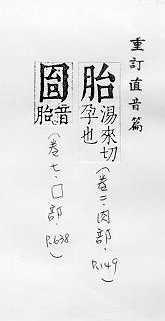 重訂直音篇
胎
湯來切
孕也
(卷二·肉部·P.149)
囼
音
胎
(卷七·囗部·P.638)